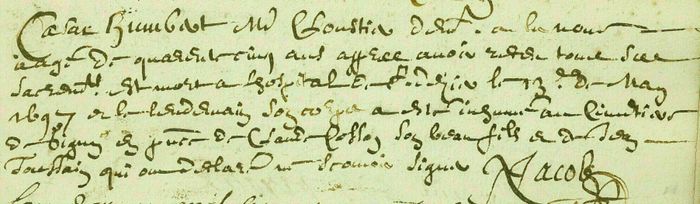 Cesar Humbert Mre
aagé de quarente cinq ans appres avoir receu tous ses
sacrentz. est mort a lhospital de st. le 13e. de May
1697 et le lendemain son corps a esté inhumé au Cimetiere
de en pnce de Claude son beau fils et de Jean
Toussain qui ont declaré ne scavoir signer Jacob